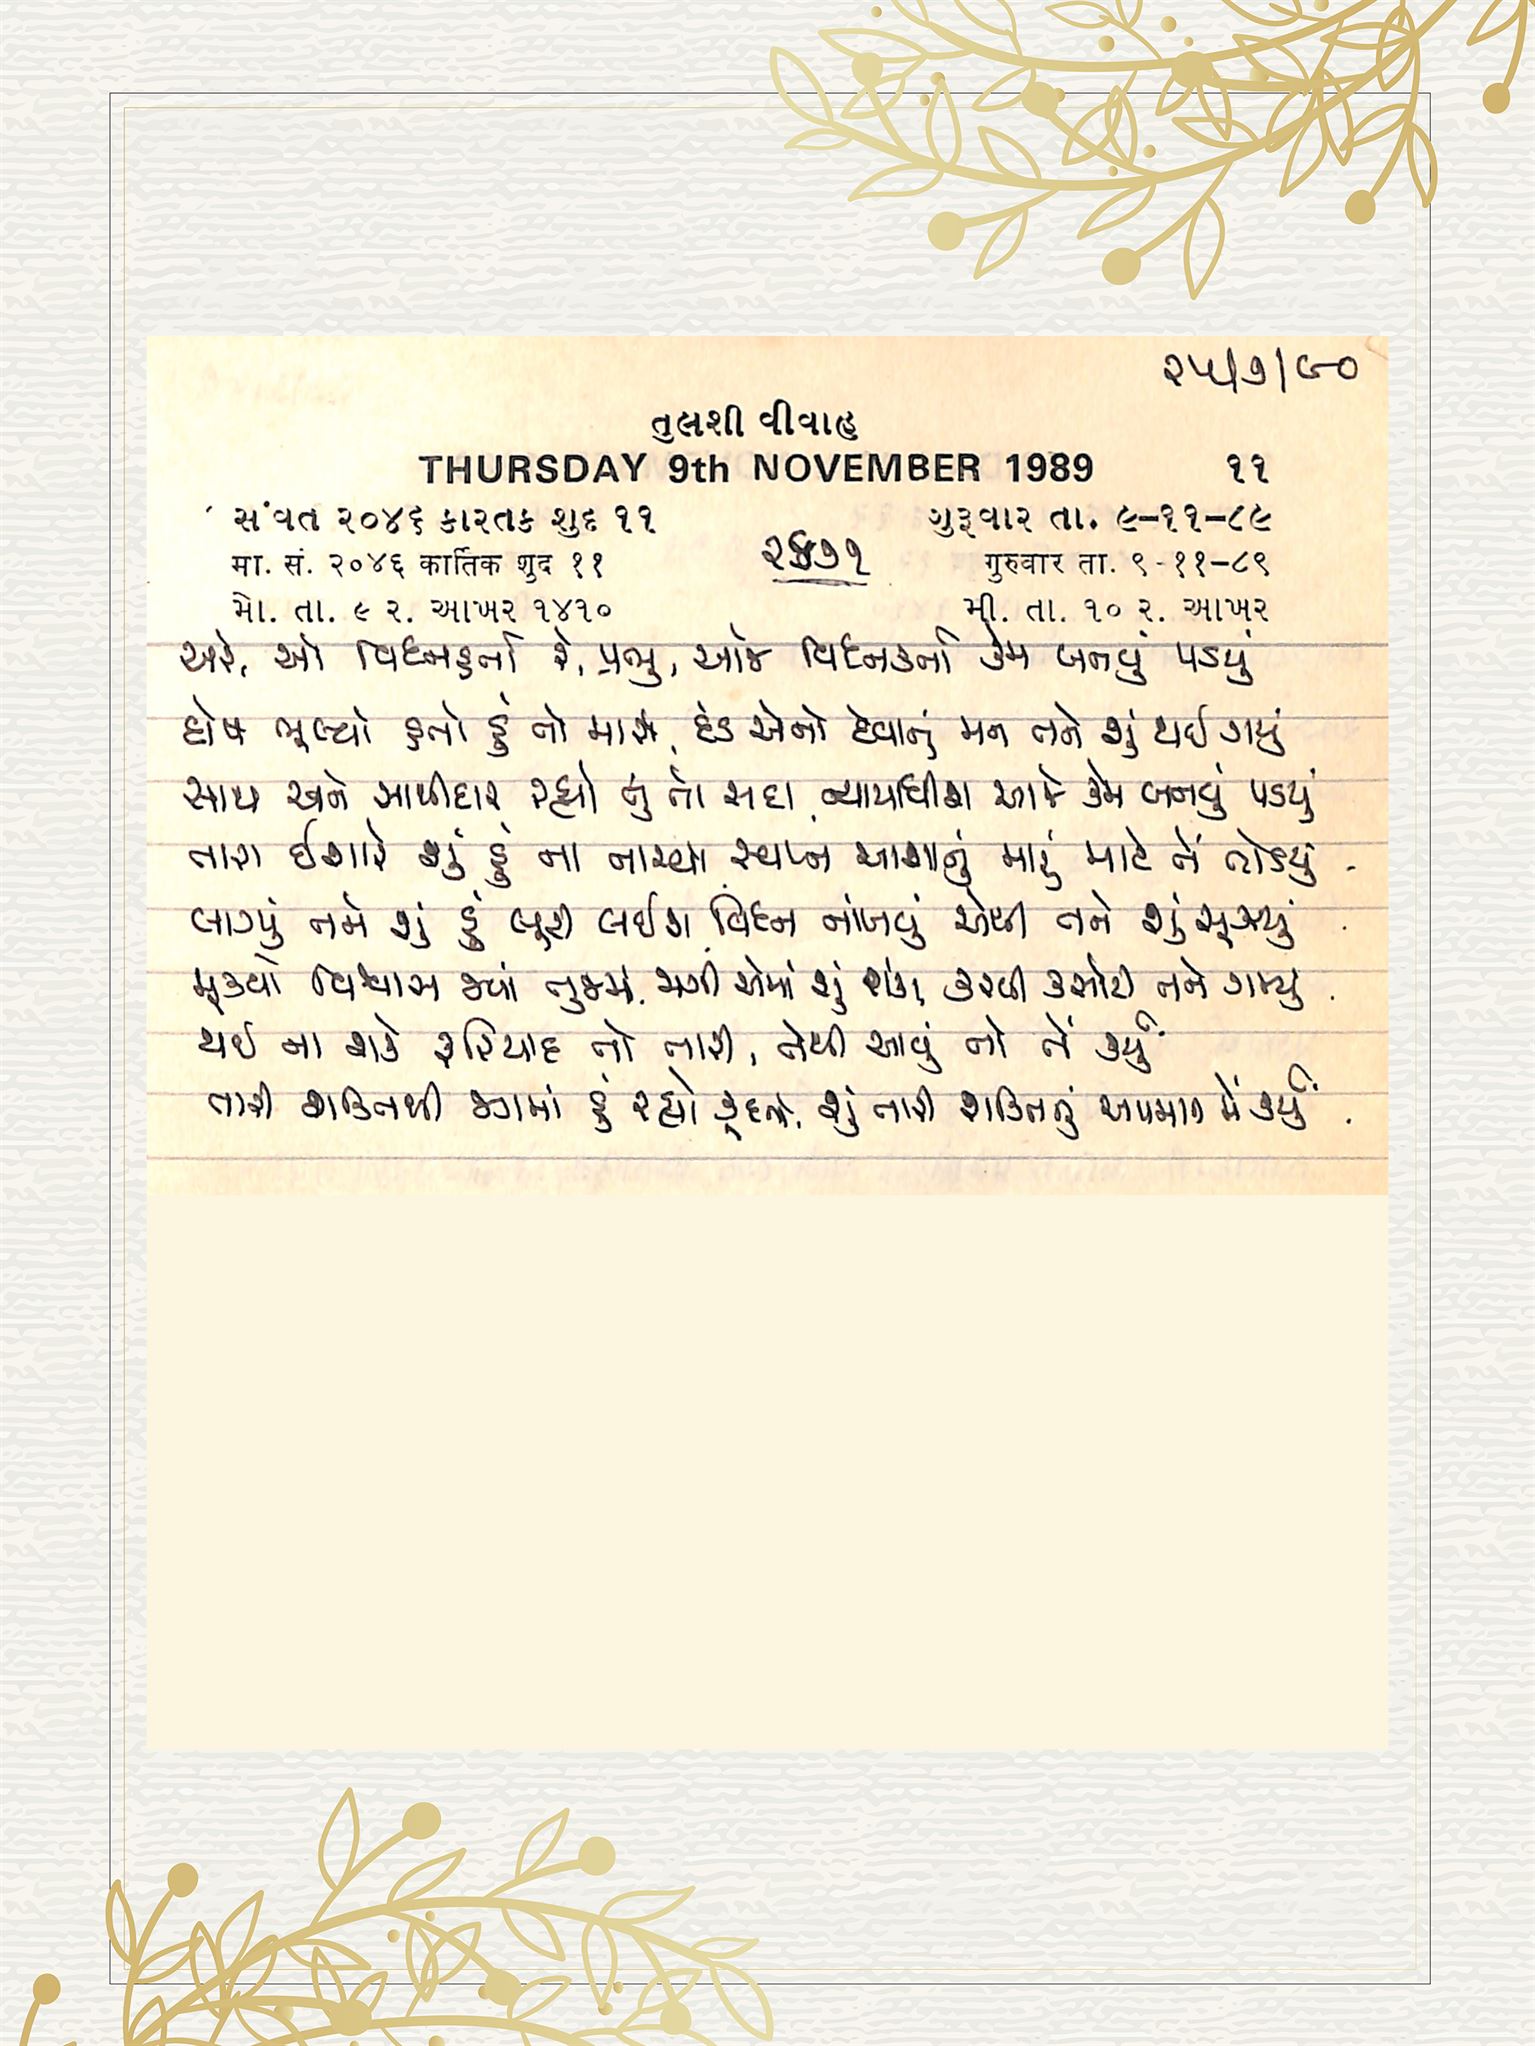 ૨૫/૭/૯૦
તુલશી વીવાહ
THURSDAY 9th NOVEMBER 1989 ૧૧
સંવત ૨૦૪૬ કારતક શુદ ૧૧ ગુરૂવાર તા. ૯-૧૧-૮૯
मा. सं. २०४६ कार्तिक शुद ११ गुरुवार ता. ९-११-८९
મો. તા. ૯ ર. આખર ૧૪૧૦ મી. તા. ૧૦ ર. આખર
અરે, ઓ વિઘ્નહર્તા રે, પ્રભુ, આજે વિઘ્નકર્તા કેમ બનવું પડયું
દોષ ભૂલ્યો હતો હું તો મારો, દંડ એનો દેવાનું મન તને શું થઈ ગયું
સાથ અને સાથીદાર રહ્યો તું તો સદા, ન્યાયાધીશ આજે કેમ બનવું પડયું
તારા ઈશારે શું હું ના નાચ્યો, સ્વપ્ન આશાનું મારું માટે તેં તોડયું
લાગ્યું તને શું હું લૂંટી લઈશ, વિઘ્ન નાંખવું એથી તને શું સૂઝ્યું
મૂકવો વિશ્વાસ જ્યાં તુજમાં, જાગી એમાં શું શંકા, કરવી કસોટી તને ગમ્યું
થઈ ના શકે ફરિયાદ તો તારી, તેથી આવું તો તેં કર્યું
તારી શક્તિથી જગમાં હું રહ્યો કૂદતો, શું તારી શક્તિનું અપમાન મેં કર્યું